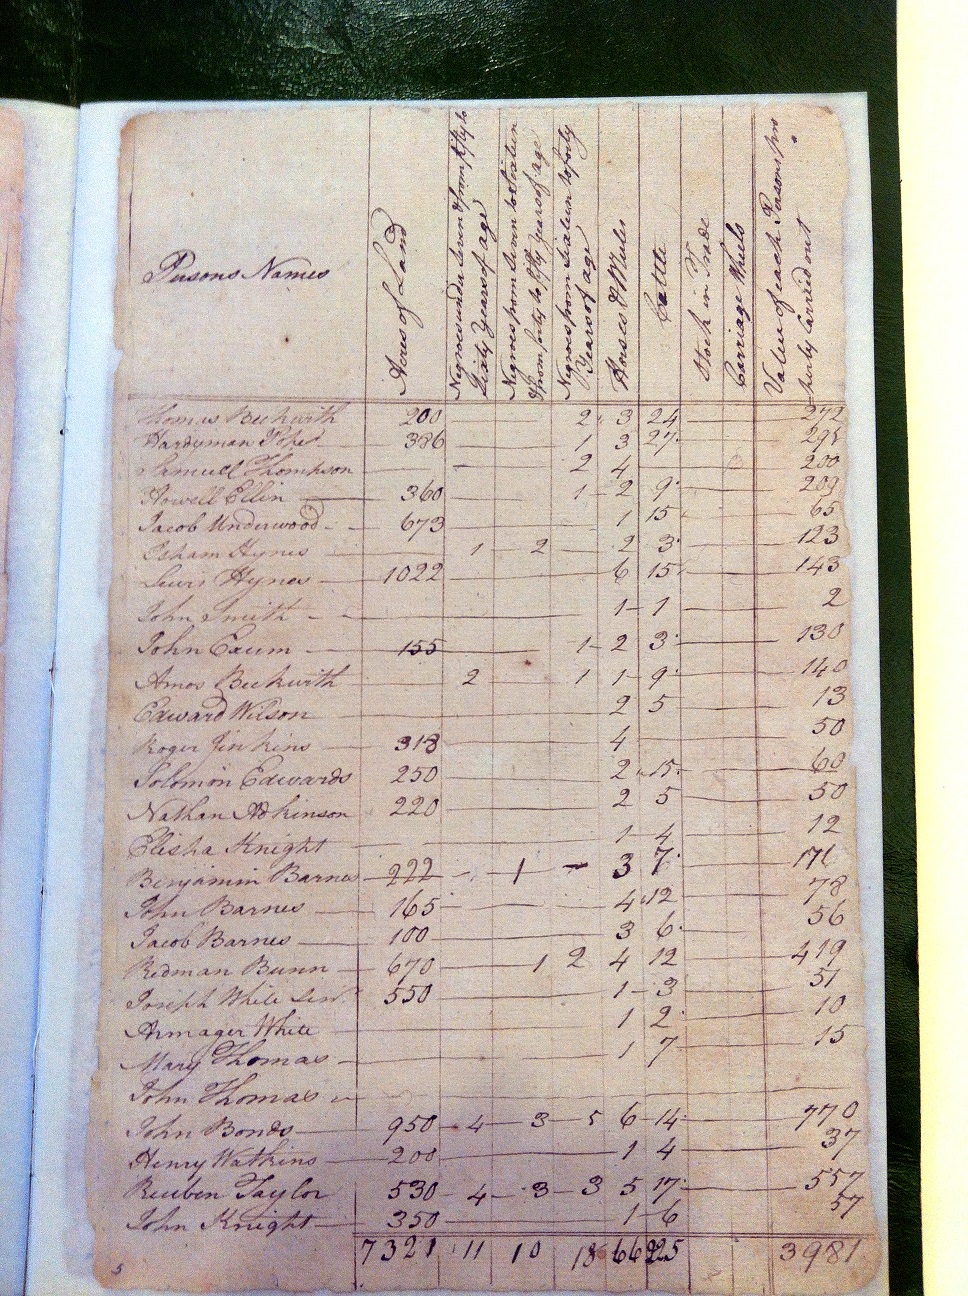 Persons Names
Acres of Land
Negroes under Seven & from fifty to
Sixty Years of age
Negroes from Seven to Sixteen
& from forty to fifty Years of age
Negroes from Sixteen to forty
Years of age
Horses & Mules
Cattle
Stock in Trade
Carriage Wheels
Value of each Persons pro
perty Carried out
Thomas Beckwith 200 2 3 24 272
Hardyman Pope 386 1 3 27 295
Samuel Thompson 2 4 200
Howell Ellin 360 1 2 9 209
Jacob Underwood 673 1 15 65
Isham Hynes 1 2 2 3 123
Lewis Hynes 1022 6 15 143
John Smith 1 1 2
John Exum 155 1 2 3 130
Amos Beckwith 2 1 1 9 140
Edward Wilson 2 5 13
Roger Jinkins 318 4 50
Solomon Edwards 250 2 15 60
Nathan Adkinson 220 2 5 50
Elisha Knight 1 4 12
Benjamin Barnes 222 1 3 7 171
John Barnes 165 4 12 78
Jacob Barnes 100 3 6 56
Redman Bunn 670 1 2 4 12 419
Joseph White Senr 550 1 3 51
Armager White 1 2 10
Mary Thomas 1 7 15
John Thomas
John Bonds 950 4 3 5 6 14 770
Henry Watkins 200 1 4 37
Reuben Taylor 530 4 3 3 5 17 557
John Knight 350 1 6 57
7321 11 10 18 66 225 3981
5